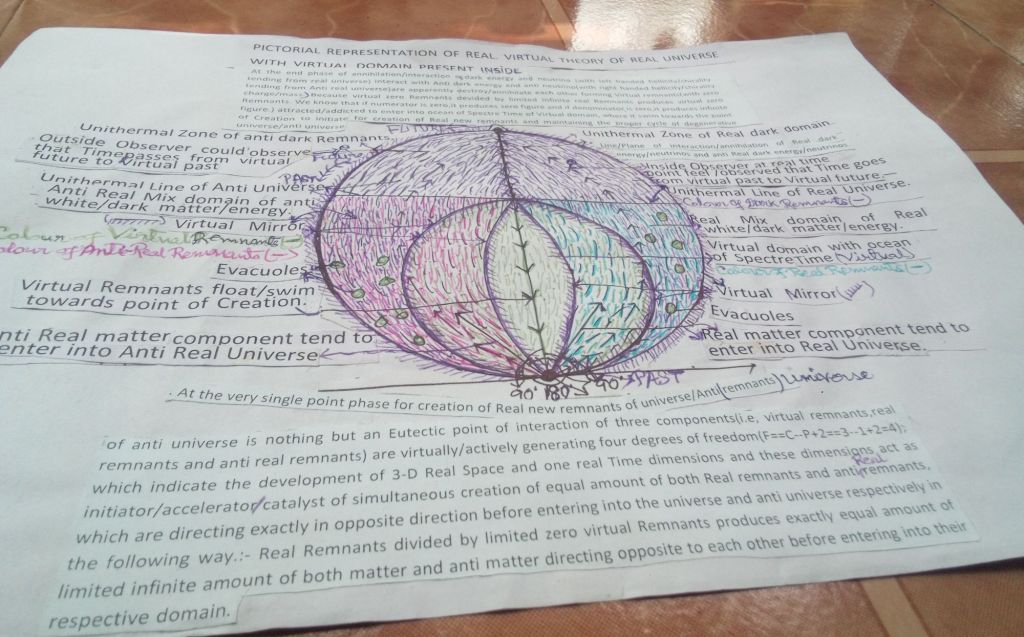 PICTORIAL REPRESENTATION OF REAL VIRTUAL THEORY OF REAL UNIVERSE
WITH VIRTUAL DOMAIN PRESENT INSIDE
At the end phase of annihilation/interaction dark energy and neutrino (with left handed helicity/chirality
tending from real universe) interact with Anti dark energy and anti neutrino(with right handed helicity/chirality
tending from Anti real universe)are apparently destroy/annihilate each other forming Virtual remnants(with zero
charge/mass) Because virtual zero Remnants devided by limited infinite real Remnants produces virtual zero
Remnants. We know that if numerator is zero,it produces zero figure and if denominator is zero,it produces infinite
figure.) attracted/addicted to enter into ocean of Spectre Time of Virtual domain, where it swim towards the point
of Creation to initiate for creation of Real new remnants and maintaining the proper cycle of degenerative
universe/anti universe
FUTURE
Unithermal Zone of anti dark Remnants
Outside Observer could observe
that Time passes from virtual
future to Virtual past
Future
PAST
Unithermal Line of Anti Universe
Anti Real Mix domain of anti
white/dark matter/energy.
Virtual Mirror
Colour of Virtual Remnants (-)
Colour of Anti-Real Remnants (-)
Evacuoles
Virtual Remnants float/swim
towards point of Creation.
Anti Real matter component tend to
enter into Anti Real Universe
Unithermal Zone of Real dark domain
Line/Plane of interaction/annihilation of Real dark
energy/neutrinos and anti Real dark energy/neutrinos
Inside Observer at real time
point feel/observed that Time goes
from virtual past to Virtual future.
Unithermal Line of Real Universe.
Colour of Dark Remnants (-)
Real Mix domain of Real
white/dark matter/energy.
Virtual domain with ocean
of SpectreTime (Virtual
Colour of Real Remnants (-)
Virtual Mirror
Evacuoles
Real matter component tend to
enter into Real Universe.
90° 180° 90° PAST
. At the very single point phase for creation of Real new remnants of universe/Anti(remnants) Universe
of anti universe is nothing but an Eutectic point of interaction of three components(i.e, virtual remnants,real
remnants and anti real remnants) are virtually/actively generating four degrees of freedom(F==C--P+2==3--1+2=4);
which indicate the development of 3-D Real Space and one real Time dimensions and these dimensions act as
initiator/accelerator/catalyst of simultaneous creation of equal amount of both Real remnants and anti Real remnants,
which are directing exactly in opposite direction before entering into the universe and anti universe respectively in
the following way.:- Real Remnants divided by limited zero virtual Remnants produces exactly equal amount of
limited infinite amount of both matter and anti matter directing opposite to each other before entering into their
respective domain.